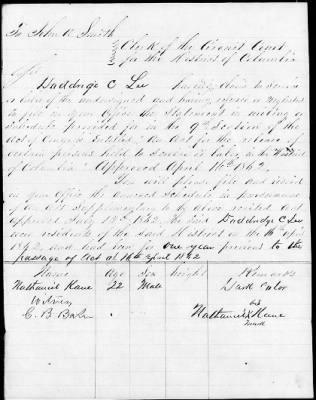 To John A Smith
Clerk of the Circuit Court
for the District of Columbia
Daddridge C Lee having claim to service
or labor of the undersigned and having refused or neglected
to file in your Office the Statement in writing or
schedule provided for in the 9th Section of the
Act of Congress Entitled, "An Act for the release of
certain persons held to Service or labor, in the District
of Columbia" Approved April 16th 1862
You will please file and record
in your Office the annexed Schedule in pursuance
of an Act Supplementary to above recited Act
approved July 12th 1862. The said Daddridge C Lee
were residents of the said District on the 16th april
1862, and had been for one year previous to the
passage of Act of 16th april 1862
Name Age Sex height Remarks
Nathaniel Kane 22 Male Dark Color
Witness his
Nathaniel X Kane
mark